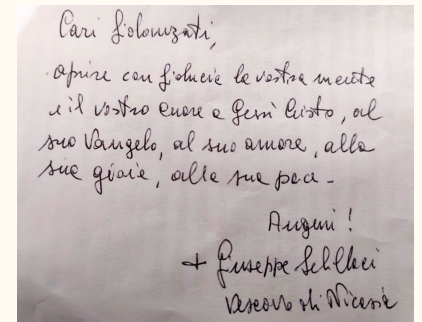 Cari fidanzati,
aprite con fiducia la vostra mente
e il vostro cuore a Gesù Cristo, al
suo Vangelo, al suo amore, alla
sua gioia, alla sua pace -
Auguri !
+ Giuseppe Schillaci
Vescovo di Nicosia